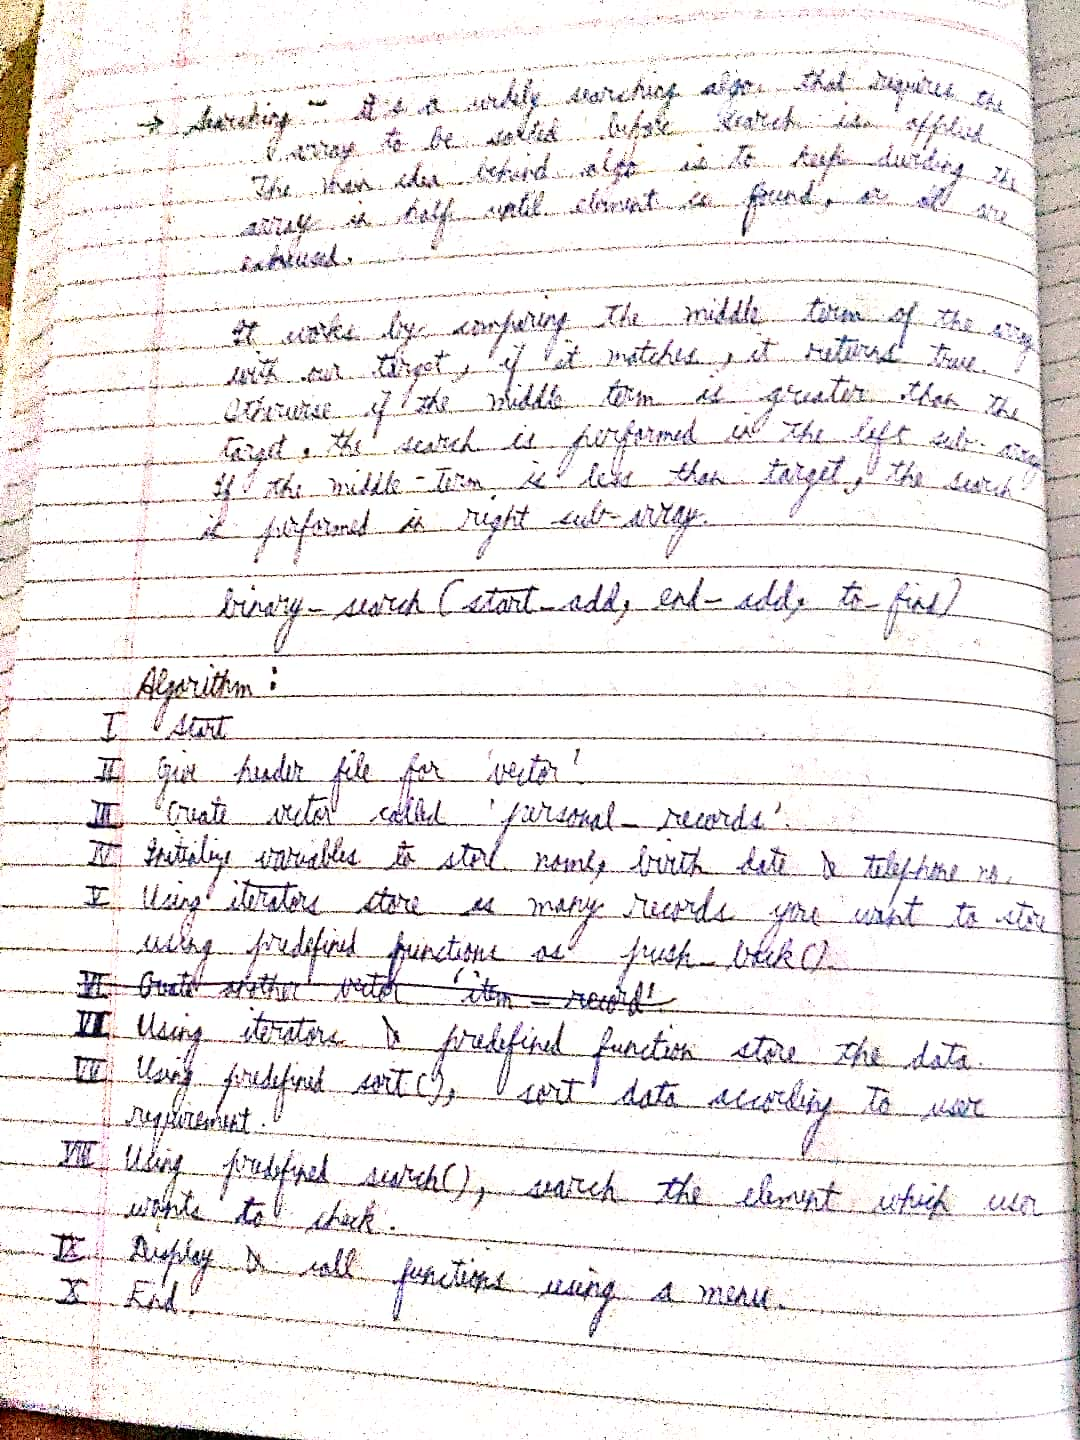 → Searching :- It's a widely searching algo. that requires the
array to be sorted before search is applied.
The main idea behind algo is to keep dividing the
array in half until element is found, or all are
exhausted.
It works by comparing the middle term of the array
with our target, if it matches, it returns true.
Otherwise if the middle term is greater than the
target. the search is performed in the left sub-array
If the middle-term is less than target, the search
is performed in right sub-array.
binary_search (start_add, end_add, to_find)
Algorithm :
I Start
II Give header file for 'vector'
III Create vector called 'personal_records'.
IV Initialize variables to store name, birth date & telephone no.
V Using iterators store as many records you want to store
using predefined functions as push_back().
VI Create another vector 'item_record'.
VI Using iterators & predefined function store the data.
VII Using predefined sort(), sort data according to user
requirement.
VIII Using predefined search(), search the element which user
wants to check.
IX Display & call functions using a menu.
X End.